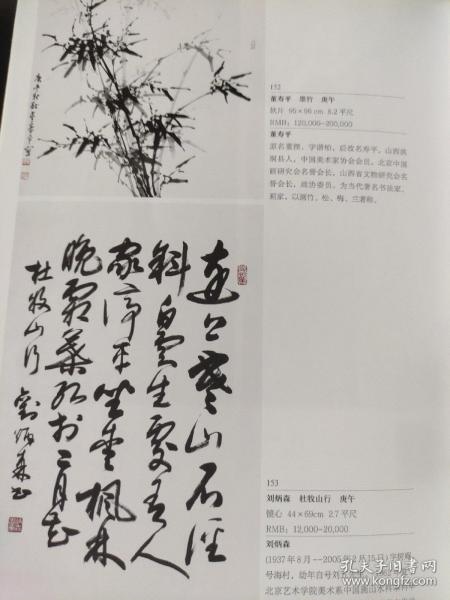 152
董寿平 墨竹 庚午
软片 95×96cm 8.2平尺
RMB: 120,000-200,000
董寿平
原名董揆，字谐柏，后改名寿平，山西洪
洞县人，中国美术家协会会员，北京中国
画研究会名誉会长，山西省文物研究会名
誉会长，政协委员，为当代著名书法家、
画家，以画竹、松、梅、兰著称。
遠上寒山石徑
斜白雲生處有人
家停車坐愛楓林
晚霜葉紅於二月花
杜牧山行 劉炳森書
153
刘炳森 杜牧山行 庚午
镜心 44×69cm 2.7平尺
RMB: 12,000-20,000
刘炳森
(1937年8月--2005年2月15日)字树庵，
号海村，幼年自号刘五
北京艺术学院美术系中国画山水科
孔夫子旧书网